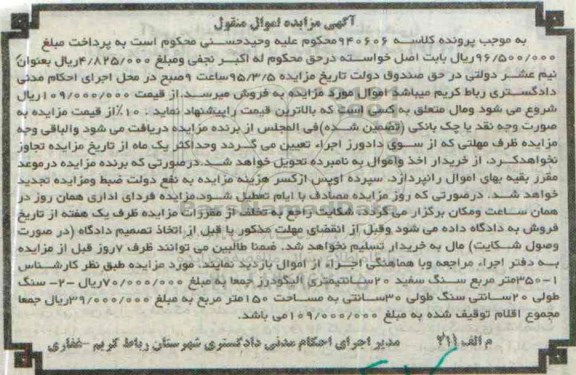 آگهی مزایده اموال منقول
به موجب پرونده کلاسه ۹۴۰۶۰۶محکوم علیه وحیدحسنی محکوم است به پرداخت مبلغ
۹۶/۵۰۰/۰۰۰ریال بابت اصل خواسته درحق محکوم له اکبر نجفی ومبلغ ۴/۸۲۵/۰۰۰ریال بعنوان
نیم عشر دولتی در حق صندوق دولت تاریخ مزایده ۹۵/۳/۵ساعت ۹صبح در محل اجرای احکام مدنی
دادگستری رباط کریم میباشد اموال مورد مزایده به فروش میرسد.از قیمت ۱۰۹/۰۰۰/۰۰۰ریال
شروع می شود ومال متعلق به کسی است که بالاترین قیمت راپیشنهاد نماید . ۱۰٪از قیمت مزایده به
صورت وجه نقد یا چک بانکی (تضمین شده)فی المجلس از برنده مزایده دریافت می شود والباقی وجه
مزایده ظرف مهلتی که از سوی دادورز اجراء تعیین می گردد وحداکثر یک ماه از تاریخ مزایده تجاوز
نخواهدکرد، از خریدار اخذ واموال به نامبرده تحویل خواهد شد.درصورتی که برنده مزایده درموعد
مقرر بقیه بهای اموال رانپردازد، سپرده اوپس ازکسر هزینه مزایده به نفع دولت ضبط ومزایده تجدید
خواهد شد. درصورتی که روز مزایده مصادف با ایام تعطیل شود،مزایده فردای اداری همان روز در
همان ساعت ومکان برگزار می گردد، شکایت راجع به تخلف از مقررات مزایده ظرف یک هفته از تاریخ
فروش به دادگاه داده می شود وقبل از انقضای مهلت مذکور یا قبل از اتخاذ تصمیم دادگاه (در صورت
وصول شکایت) مال به خریدار تسلیم نخواهد شد. ضمنا طالبین می توانند ظرف ۷روز قبل از مزایده
به دفتر اجراء مراجعه وبا هماهنگی اجراء از اموال بازدید نمایند. مورد مزایده طبق نظر کارشناس
۱-۳۵۰متر مربع سنگ سفید ۲۰سانتیمتری الیگودرز جمعا به مبلغ ۷۰/۰۰۰/۰۰۰ریال -۲- سنگ
طولی ۲۰سانتی سنگ طولی ۳۰سانتی به مساحت ۱۵۰متر مربع به مبلغ ۳۹/۰۰۰/۰۰۰ریال جمعا
مجموع اقلام توقیف شده به مبلغ ۱۰۹/۰۰۰/۰۰۰می باشد.
م الف ۲۱۱ مدیر اجرای احکام مدنی دادگستری شهرستان رباط کریم -غفاری